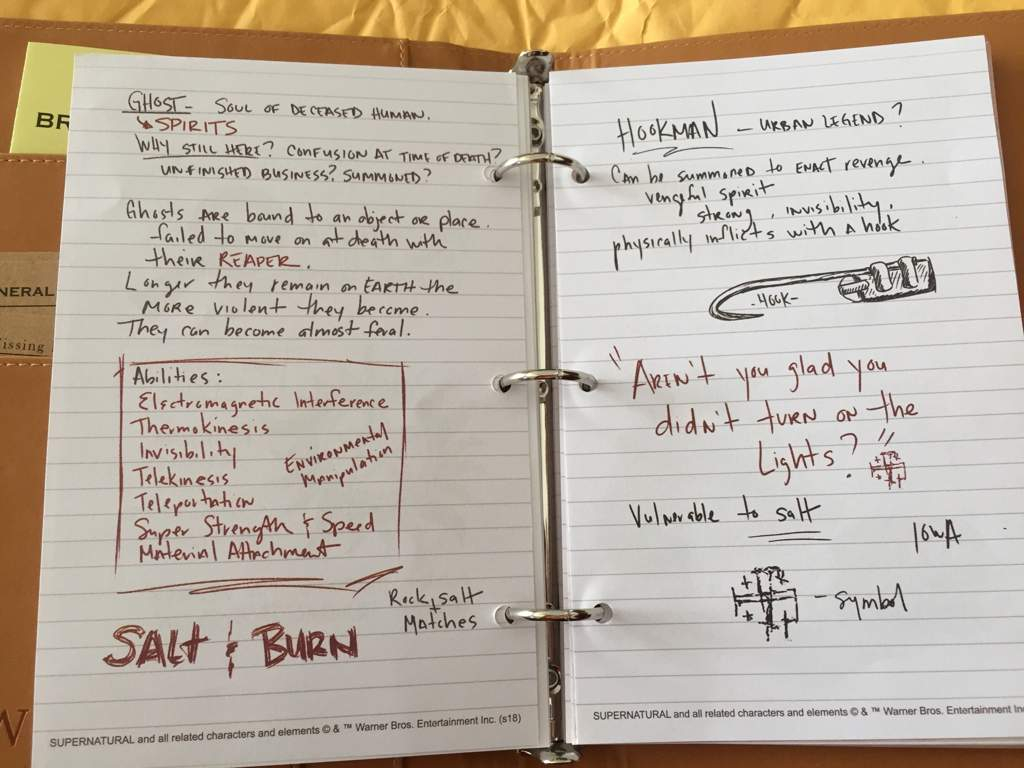 BR
NERAL
issing
GHOST - SOUL OF DECEASED HUMAN.
↳ SPIRITS
WHY STILL HERE? CONFUSION AT TIME OF DEATH?
UNFINISHED BUSINESS? SUMMONED?
Ghosts are bound to an object or place.
failed to move on at death with
their REAPER.
Longer they remain on EARTH the
MORE violent they become.
They can become almost feral.
Abilities:
Electromagnetic Interference
Thermokinesis
Invisibility
ENVIRONMENTAL
Manipulation
Telekinesis
Teleportation
Super Strength & Speed
Material Attachment
Rock salt
+
Matches
SALT & BURN
SUPERNATURAL and all related characters and elements © & ™ Warner Bros. Entertainment Inc. (s18)
W
HOOKMAN - URBAN LEGEND?
Can be summoned to ENACT revenge.
vengeful spirit
strong, invisibility,
physically inflicts with a hook
-HOOK-
"AREN'T you glad you
didn't turn on the
Lights?"
Vulnerable to salt
IOWA
- Symbol
SUPERNATURAL and all related characters and elements © & ™ Warner Bros. Entertainment In